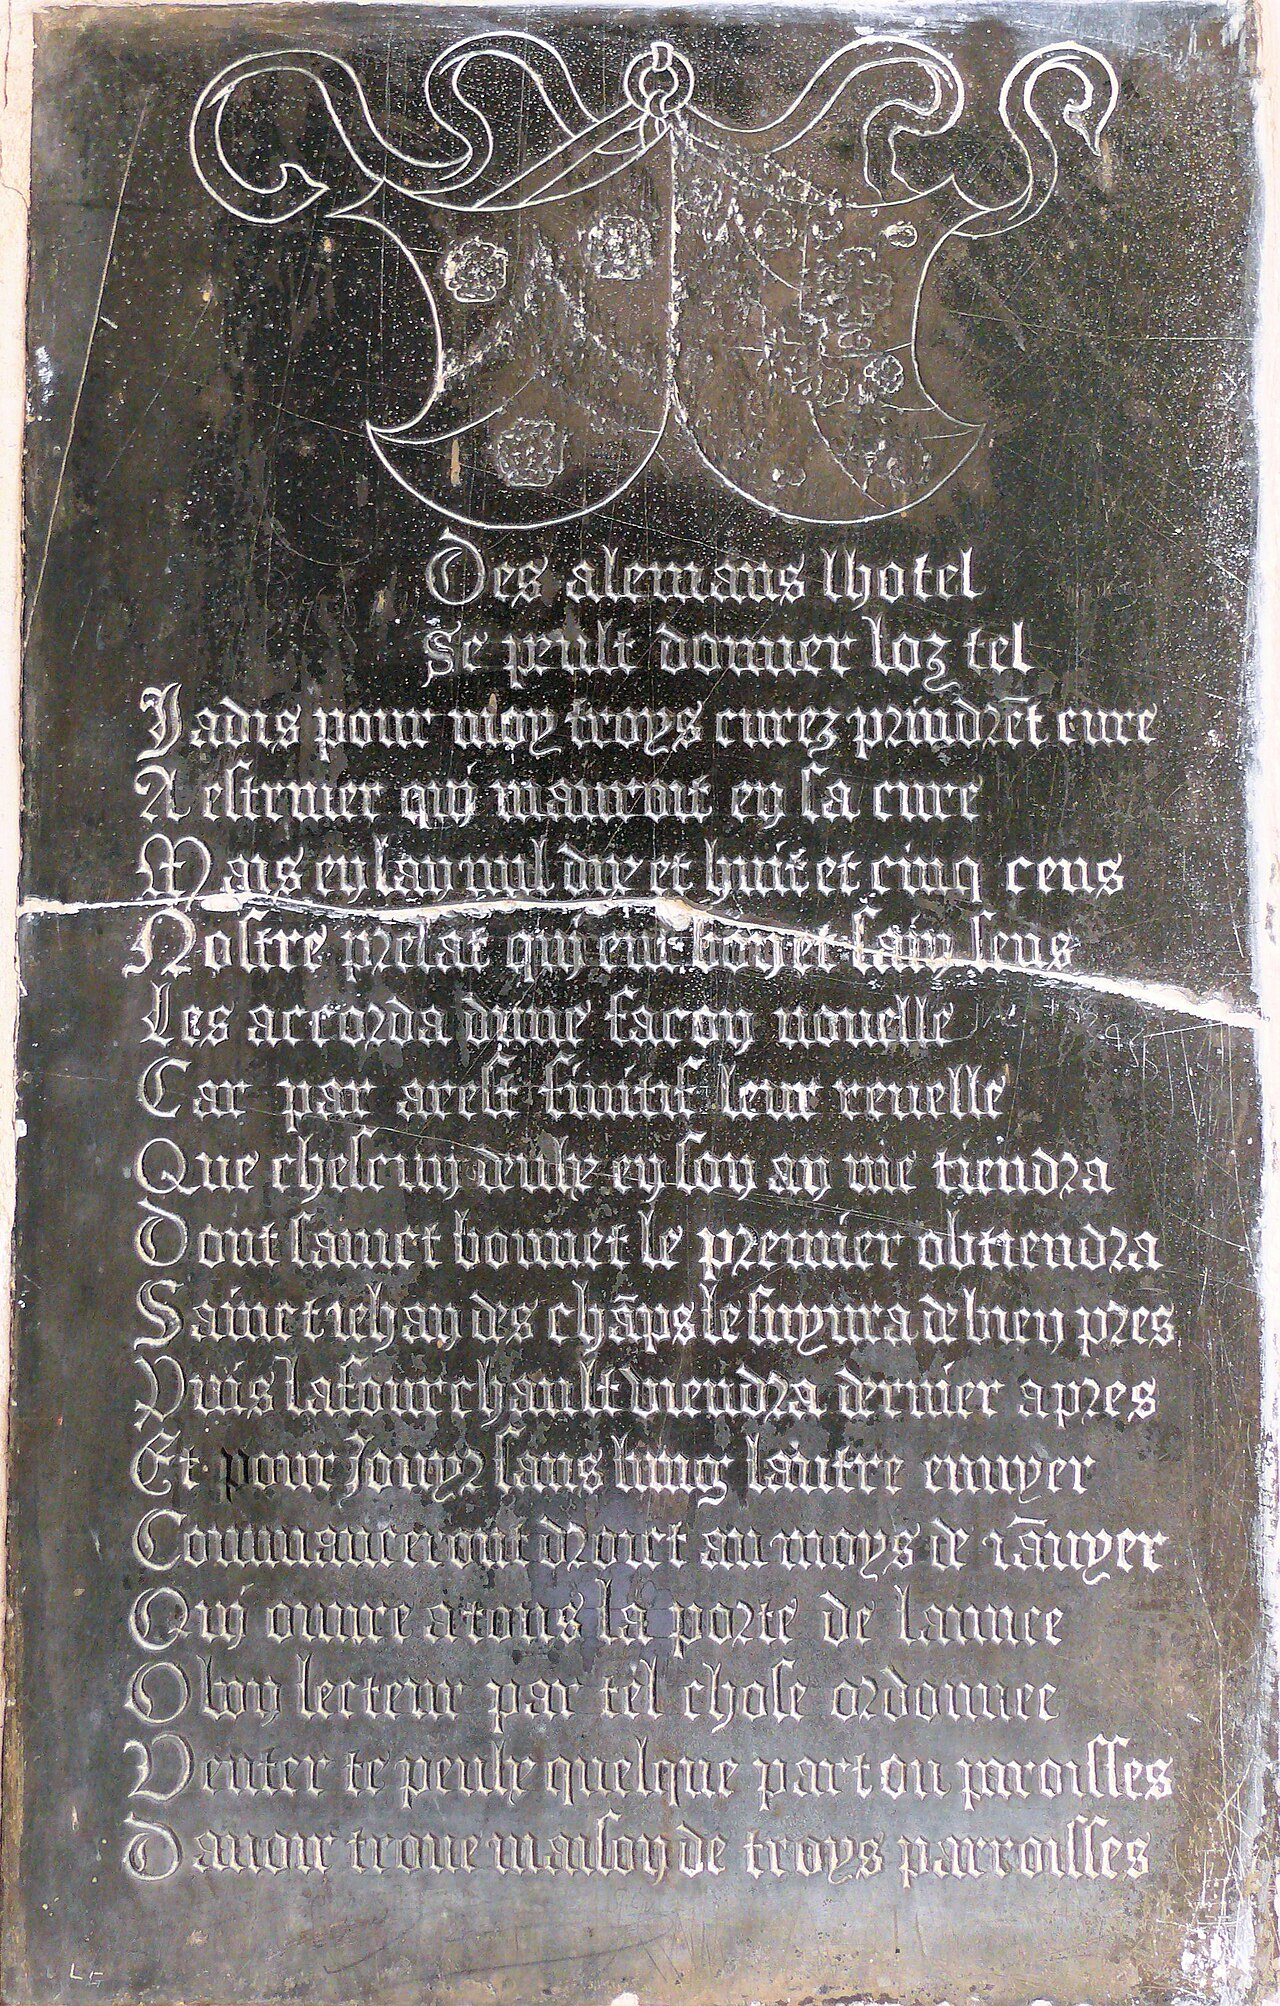 Des alemans lhotel
Se peult donner loz tel
Jadis pour moy troys curez prindrēt cure
A estriuer qui mauroit en sa cure
Mais en lan mil dix et huit et cinq cens
Nostre prelat qui eut loy et sain sens
Les accorda dune facon nouelle
Car par arest finitif leur reuelle
Que chescun deulx en son an me tiendra
Dont sainct bonnet le premier obtiendra
Sainct iehan des chāps le suyura de bien pres
Puis lafourchault viendra dernier apres
Et pour Jouyr sans lung lautre ennuyer
Commanceront droict au moys de iāuyer
Qui ouure a tous la porte de lannee
O luy lecteur par tel chose ordonnee
Venter te peulx quelque part ou paroisses
Dauoir troue maison de troys parroisses
LG